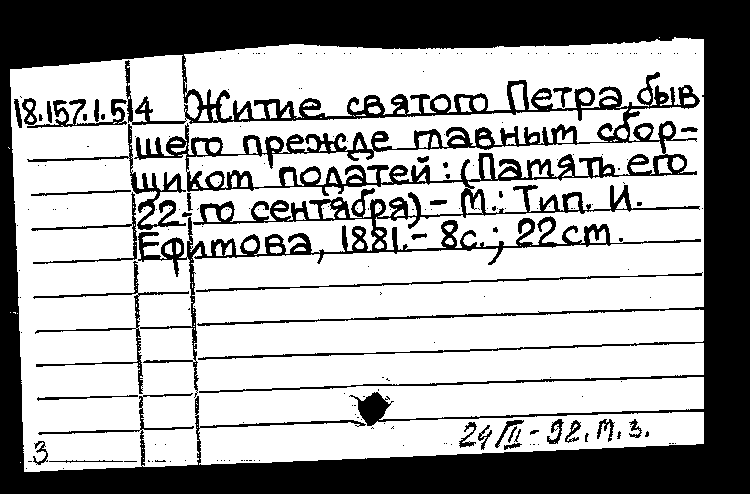 18.157.1.54 Житие святого Петра, быв
шего прежде главным сбор-
щиком податей: (Память его
22-го сентября) - М.: Тип. И.
Ефимова, 1881.- 8с.; 22см.
3